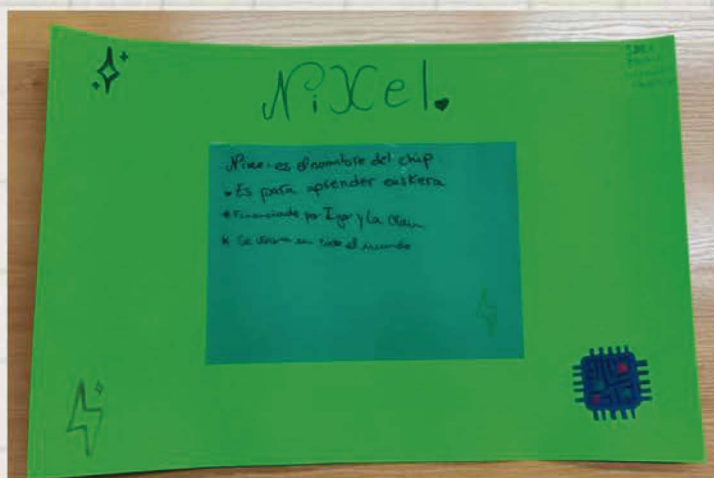 NiXel.
Nixe- es el nombre del chip
• Es para aprender euskera
• Financiado por Igor y la
* Se usara en todo el mundo